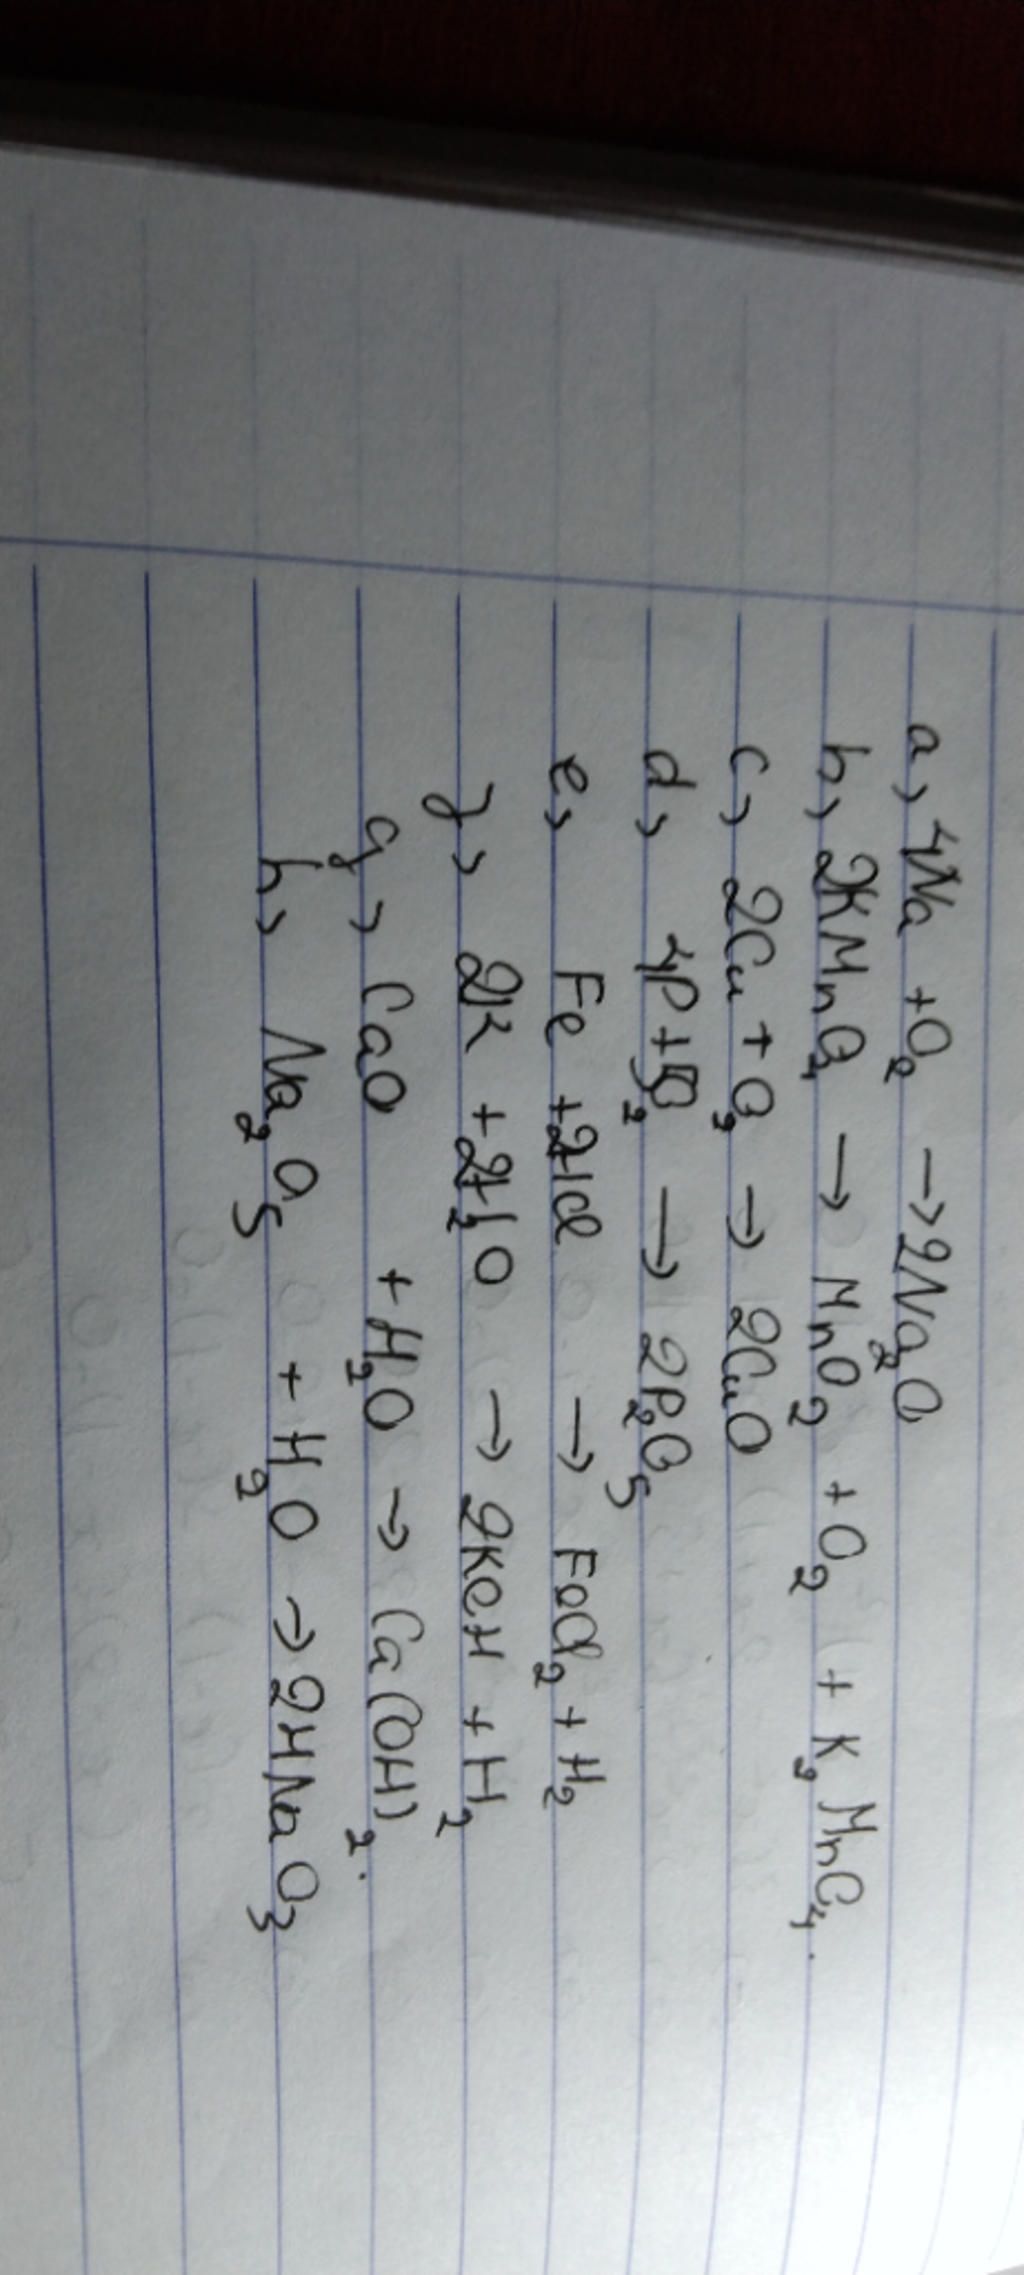 a, 4Na + O₂ → 2Na₂O
b, 2KMnO₄ → MnO₂ + O₂ + K₂MnO₄.
c, 2Cu + O₂ → 2CuO
d, 4P + 5O₂ → 2P₂O₅
e, Fe + 2HCl → FeCl₂ + H₂
f, 2K + 2H₂O → 2KOH + H₂
g, CaO + H₂O → Ca(OH)₂.
h, Na₂O₅ + H₂O → 2HNaO₃